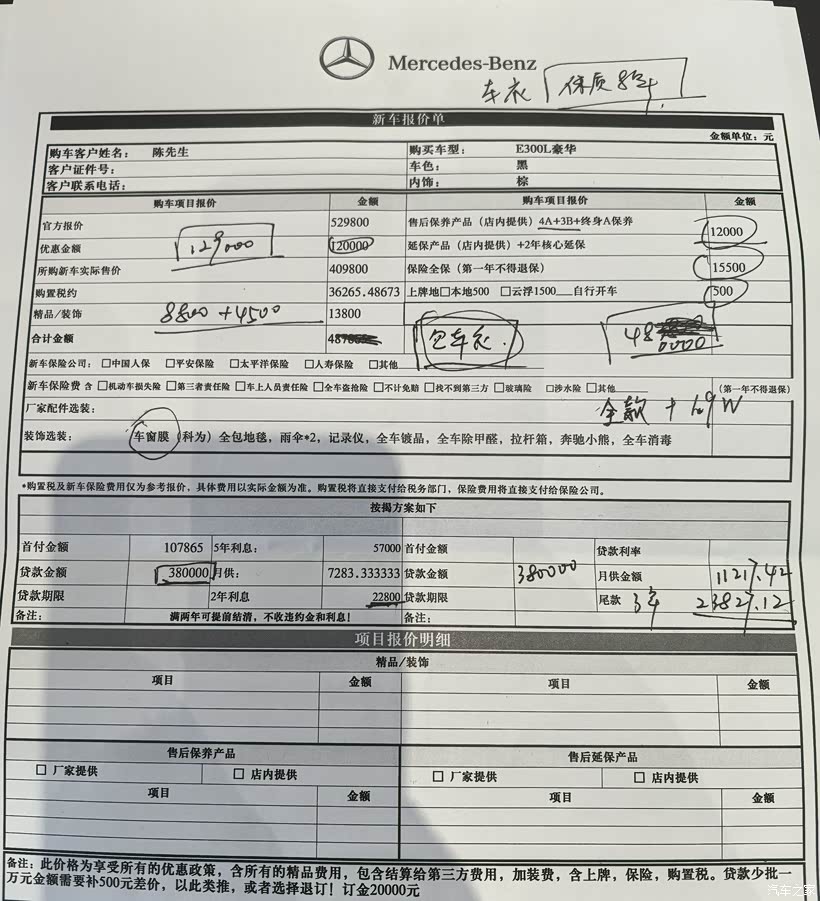 Mercedes-Benz
车衣 保质8年
新车报价单
金额单位：元
购车客户姓名： 陈先生 购买车型： E300L豪华
客户证件号： 车色： 黑
客户联系电话： 内饰： 棕
购车项目报价 金额 购车项目报价 金额
官方报价 529800 售后保养产品（店内提供）4A+3B+终身A保养 12000
优惠金额 129000 120000 延保产品（店内提供）+2年核心延保
所购新车实际售价 409800 保险全保（第一年不得退保） 15500
购置税约 36265.48673 上牌地□本地500 □云浮1500___自行开车 500
精品/装饰 8800+4500 13800
合计金额 包车衣. 48 0000
新车保险公司：□中国人保 □平安保险 □太平洋保险 □人寿保险 □其他
新车保险费 含 □机动车损失险 □第三者责任险 □车上人员责任险 □全车盗抢险 □不计免赔 □找不到第三方 □玻璃险 □涉水险 □其他 （第一年不得退保）
厂家配件选装： 全款 + 1.9W
装饰选装： 车窗膜（科为）全包地毯，雨伞*2，记录仪，全车镀晶，全车除甲醛，拉杆箱，奔驰小熊，全车消毒
*购置税及新车保险费用仅为参考报价，具体费用以实际金额为准。购置税将直接支付给税务部门，保险费用将直接支付给保险公司。
按揭方案如下
首付金额 107865 5年利息： 57000 首付金额 贷款利率
贷款金额 380000 月供： 7283.333333 贷款金额 380000 月供金额 11217.42
贷款期限 2年利息 22800 贷款期限 尾款 3年 23827.12
备注： 满两年可提前结清，不收违约金和利息！ 备注：
项目报价明细
精品/装饰
项目 金额 项目 金额
售后保养产品 售后延保产品
□ 厂家提供 □ 店内提供 □ 厂家提供 □ 店内提供
项目 金额 项目 金额
备注：此价格为享受所有的优惠政策，含所有的精品费用，包含结算给第三方费用，加装费，含上牌，保险，购置税。贷款少批一
万元金额需要补500元差价，以此类推，或者选择退订！订金20000元
汽车之家